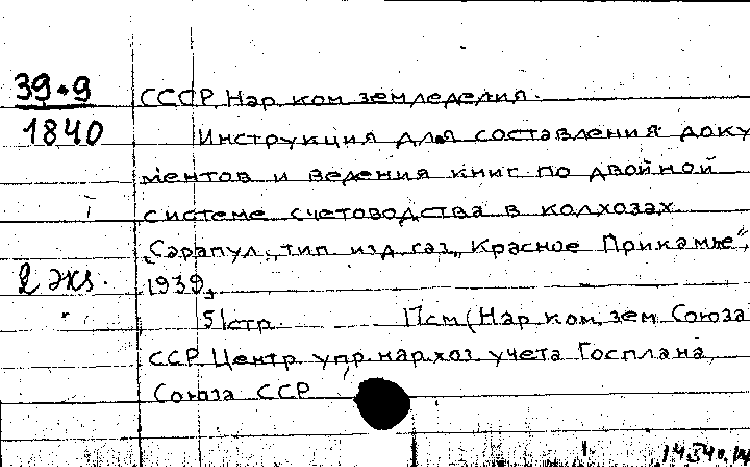 39-9
СССР Нар. ком. земледелия.
1840
Инструкция для составления доку
ментов и ведения книг по двойной
системе счетоводства в колхозах
Сарапул, тип. изд. газ. „Красное Прикамье",
2 экз.
1939,
51 стр. Псм (Нар. ком. зем. Союза
ССР Центр. упр. нар. хоз. учета Госплана
Союза ССР